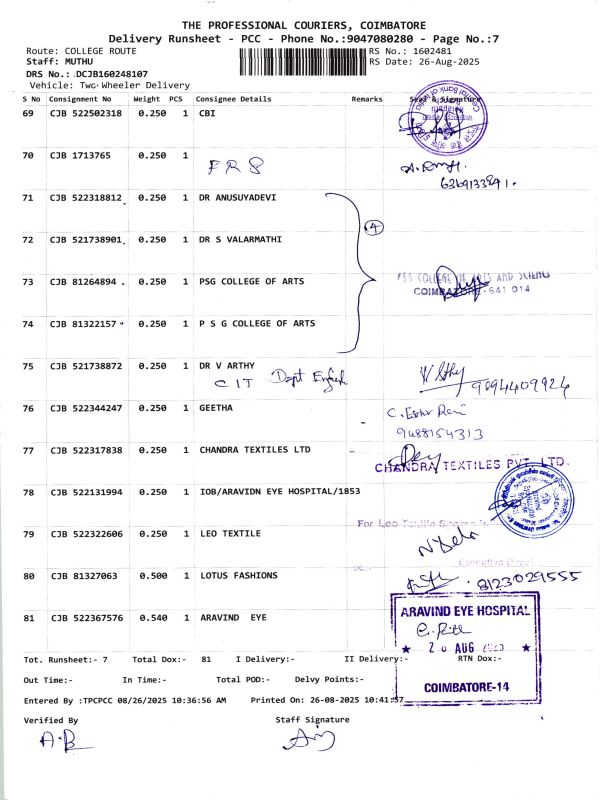 THE PROFESSIONAL COURIERS, COIMBATORE
Delivery Runsheet - PCC - Phone No.:9047080280 - Page No.:7
Route: COLLEGE ROUTE RS No.: 1602481
Staff: MUTHU RS Date: 26-Aug-2025
DRS No.: DCJB160248107
Vehicle: Two Wheeler Delivery
S No Consignment No Weight PCS Consignee Details Remarks Seal & Signature
69 CJB 522502318 0.250 1 CBI
70 CJB 1713765 0.250 1
FRS
6369133841.
71 CJB 522318812 0.250 1 DR ANUSUYADEVI
4
72 CJB 521738901 0.250 1 DR S VALARMATHI
73 CJB 81264894 0.250 1 PSG COLLEGE OF ARTS
PSG COLLEGE OF ARTS AND SCIENCE
COIMBATORE-641 014
74 CJB 81322157 0.250 1 P S G COLLEGE OF ARTS
75 CJB 521738872 0.250 1 DR V ARTHY
CIT Dept English
9894409924
76 CJB 522344247 0.250 1 GEETHA
9488154313
77 CJB 522317838 0.250 1 CHANDRA TEXTILES LTD
CHANDRA TEXTILES PVT. LTD.
78 CJB 522131994 0.250 1 IOB/ARAVIDN EYE HOSPITAL/1853
79 CJB 522322606 0.250 1 LEO TEXTILE
For Leo Textile
80 CJB 81327063 0.500 1 LOTUS FASHIONS
8123029555
81 CJB 522367576 0.540 1 ARAVIND EYE
ARAVIND EYE HOSPITAL
★ 26 AUG 2025 ★
COIMBATORE-14
Tot. Runsheet:- 7 Total Dox:- 81 I Delivery:- II Delivery:- RTN Dox:-
Out Time:- In Time:- Total POD:- Delvy Points:-
Entered By :TPCPCC 08/26/2025 10:36:56 AM Printed On: 26-08-2025 10:41:57
Verified By Staff Signature